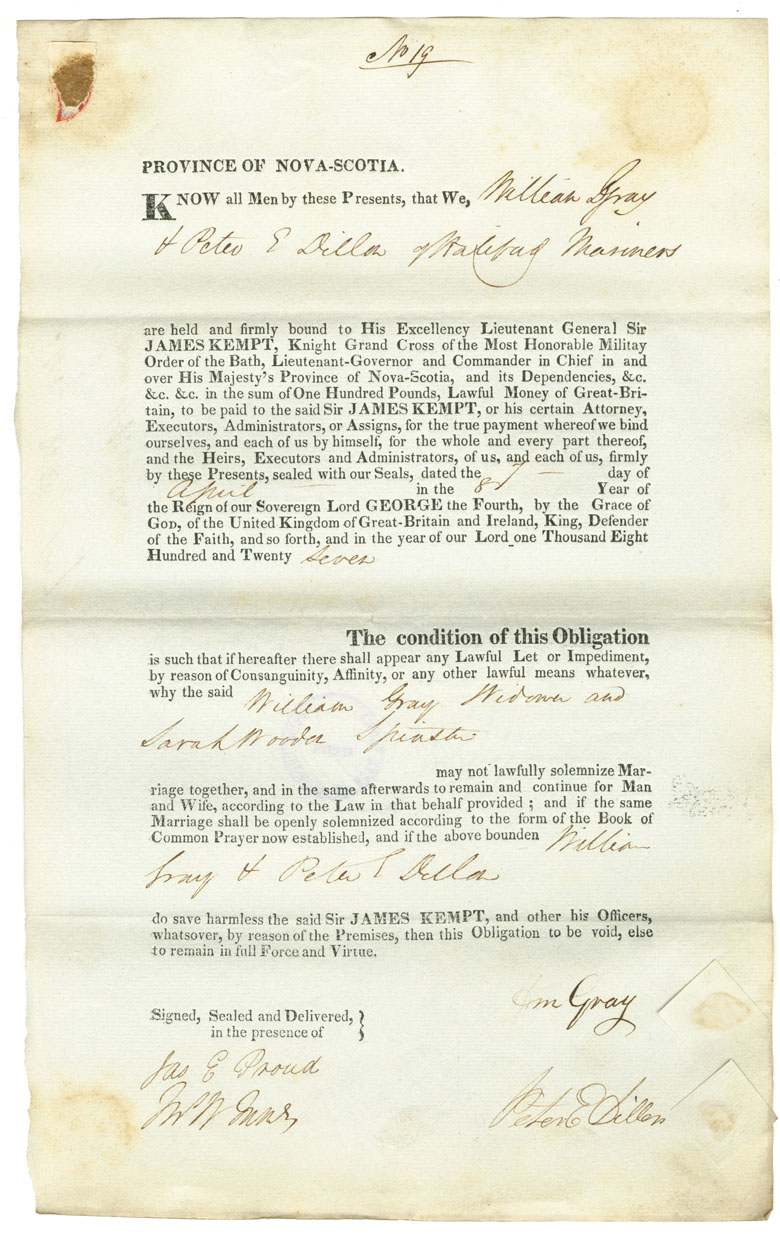 No 19
PROVINCE OF NOVA-SCOTIA.
KNOW all Men by these Presents, that We, William Gray
& Peter E Dillon of Halifax Mariners
are held and firmly bound to His Excellency Lieutenant General Sir
JAMES KEMPT, Knight Grand Cross of the Most Honorable Militay
Order of the Bath, Lieutenant-Governor and Commander in Chief in and
over His Majesty's Province of Nova-Scotia, and its Dependencies, &c.
&c. &c. in the sum of One Hundred Pounds, Lawful Money of Great-Bri-
tain, to be paid to the said Sir JAMES KEMPT, or his certain Attorney,
Executors, Administrators, or Assigns, for the true payment whereof we bind
ourselves, and each of us by himself, for the whole and every part thereof,
and the Heirs, Executors and Administrators, of us, and each of us, firmly
by these Presents, sealed with our Seals, dated the 7 day of
April in the 8 Year of
the Reign of our Sovereign Lord GEORGE the Fourth, by the Grace of
GOD, of the United Kingdom of Great-Britain and Ireland, King, Defender
of the Faith, and so forth, and in the year of our Lord one Thousand Eight
Hundred and Twenty Seven
The condition of this Obligation
is such that if hereafter there shall appear any Lawful Let or Impediment,
by reason of Consanguinity, Affinity, or any other lawful means whatever,
why the said William Gray Widower and
Sarah Wooden Spinster
may not lawfully solemnize Mar-
riage together, and in the same afterwards to remain and continue for Man
and Wife, according to the Law in that behalf provided ; and if the same
Marriage shall be openly solemnized according to the form of the Book of
Common Prayer now established, and if the above bounden William
Gray & Peter E Dillon
do save harmless the said Sir JAMES KEMPT, and other his Officers,
whatsover, by reason of the Premises, then this Obligation to be void, else
to remain in full Force and Virtue.
Wm Gray
Signed, Sealed and Delivered, }
in the presence of
Jas E Proud
Peter E Dillon